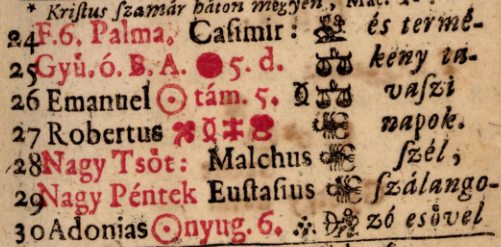 * Kriſtus ſzamár háton megyen,
24 F. 6. Palma. Caſimir: és termé-
25 Gyü. ó. B. A. ● 5. d. ♎♎ keny ta-
26 Emanuel ☉ tám. 5. ☿ ♎♎ vaſzi
27 Robertus napok.
28 Nagy Tsöt: Malchus ſzél,
29 Nagy Péntek Euſtaſius ſzálango-
30 Adonias ☉ nyug. 6. zó eső́vel